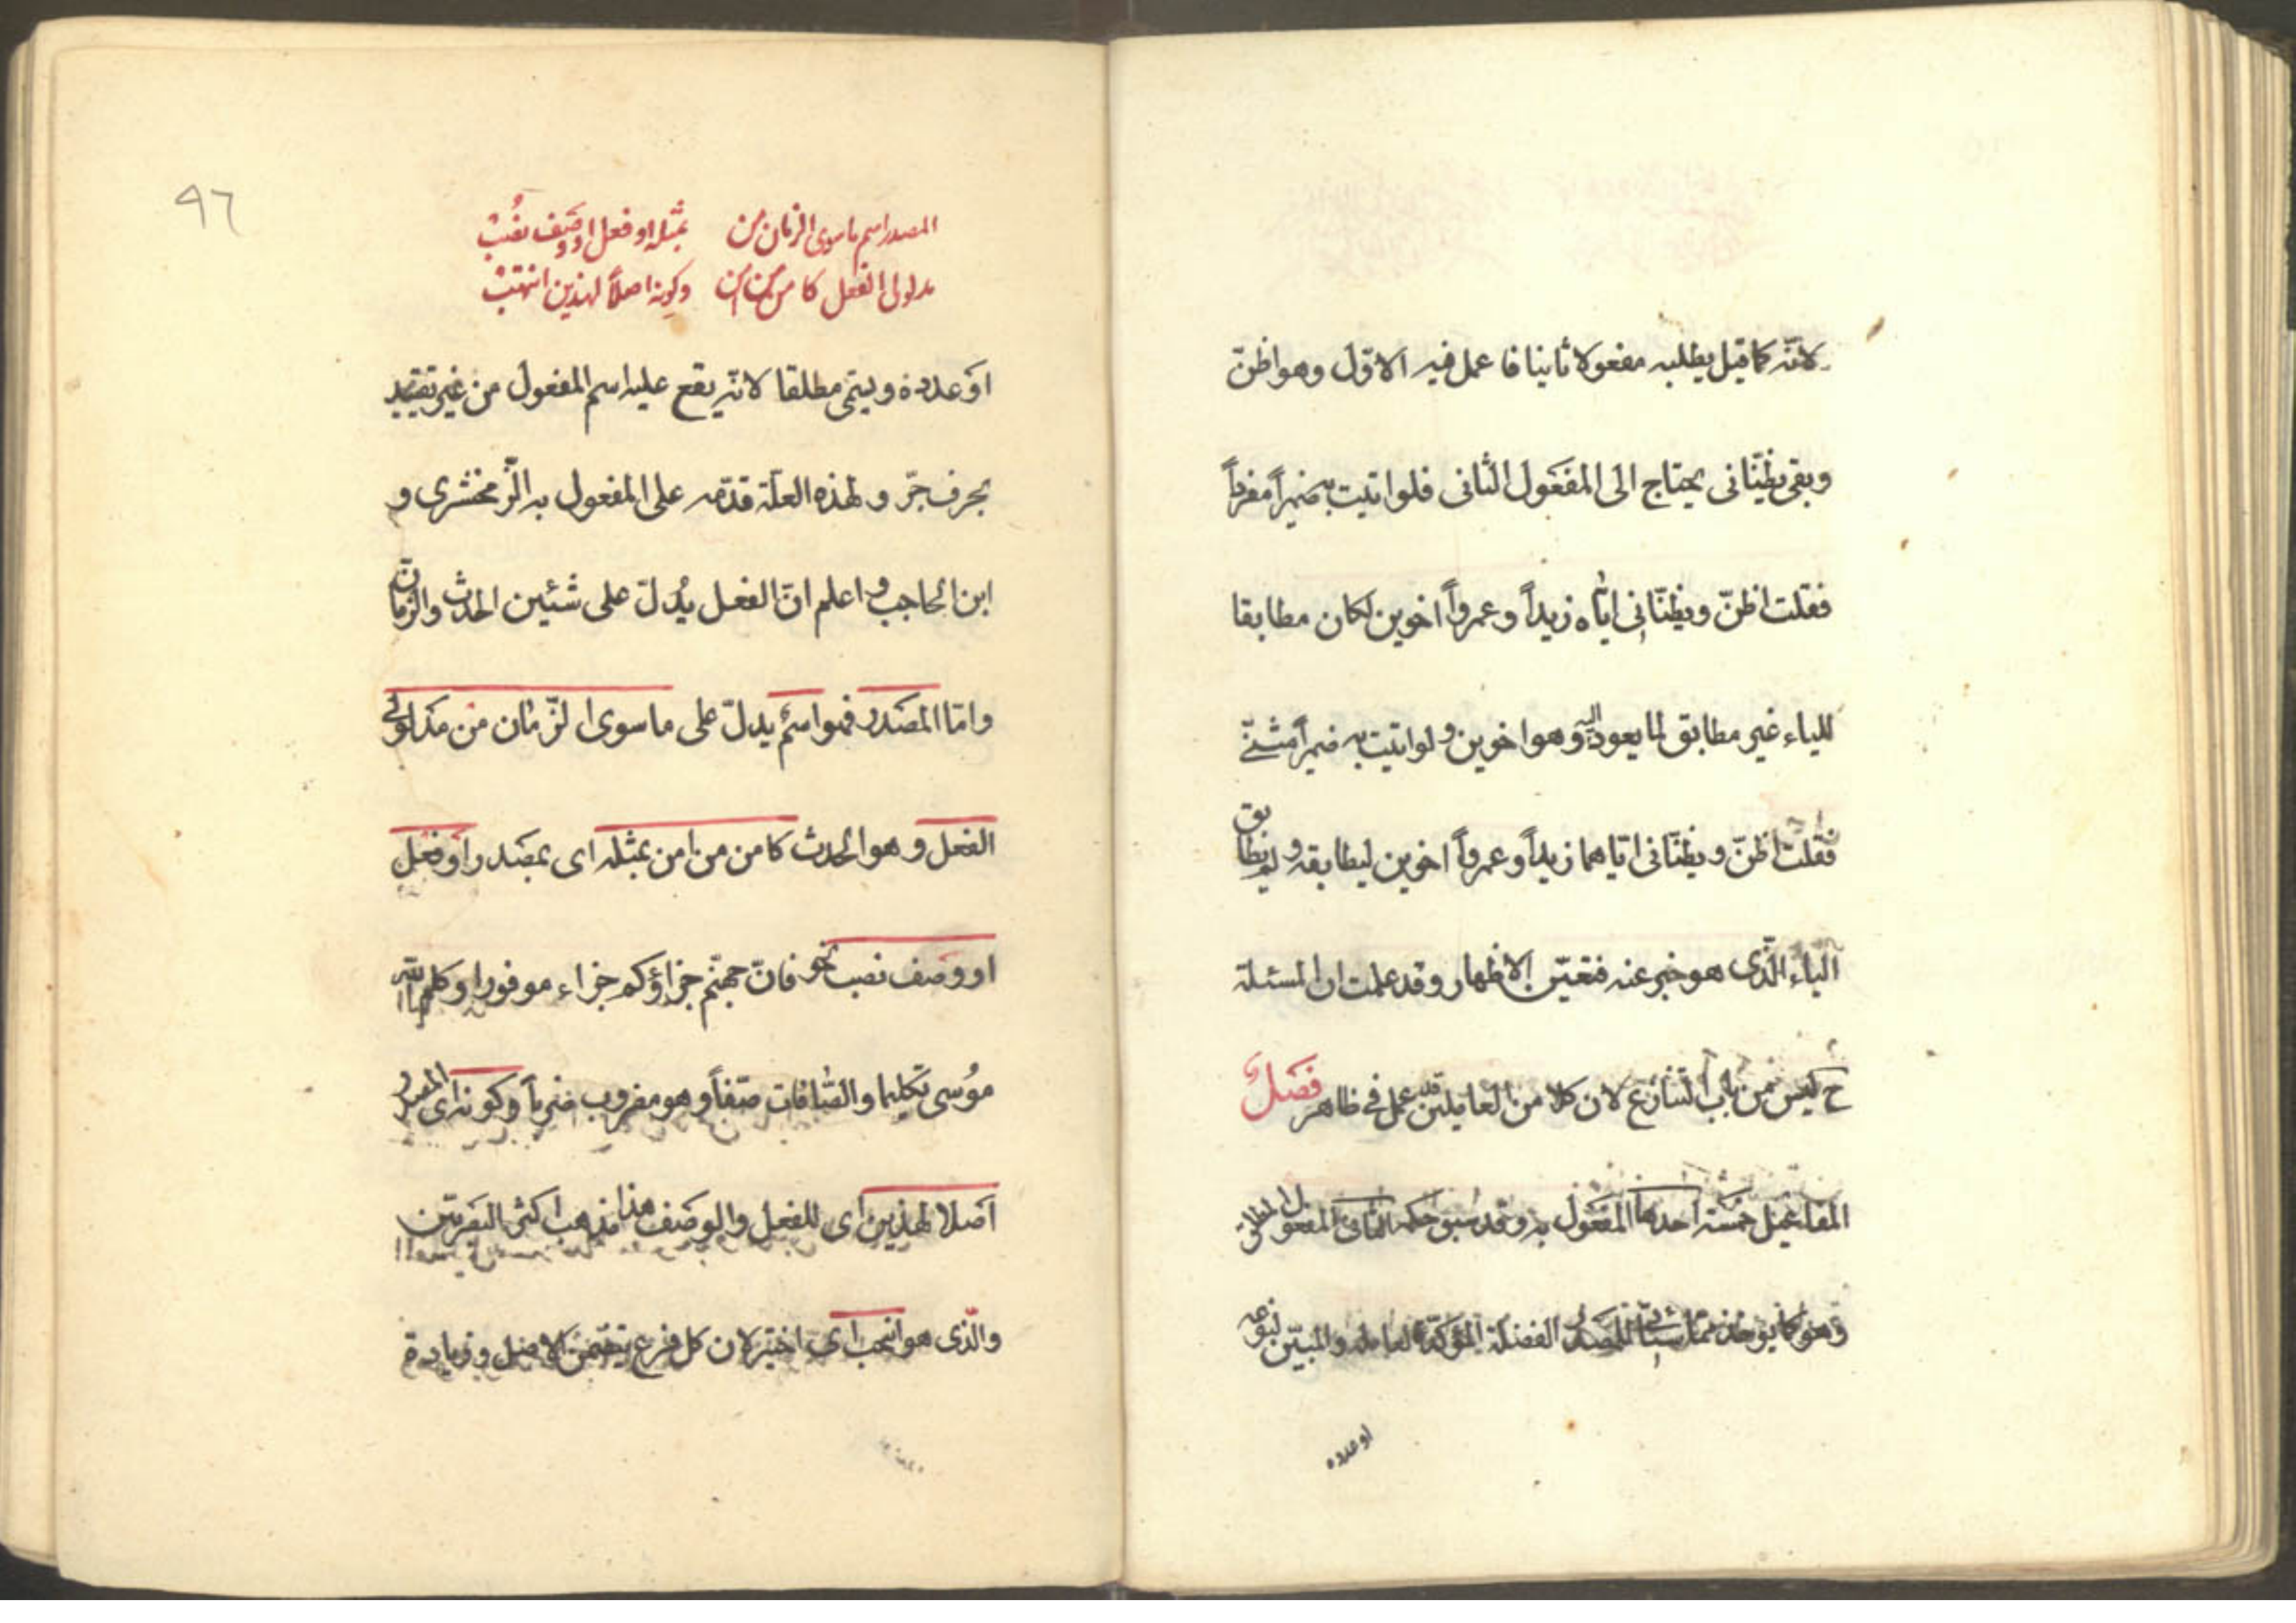 لانّه كما قيل يطلبه مفعولا ثانيا فا عمل فيه الاوّل وهو اظنّ
وبقى يظنّانى يحتاج الى المفعول الثانى فلو اتيت به ضميراً مفرداً
فقلت اظنّ ويظنّانى ايّاه زيداً وعمرواً اخوين لكان مطابقا
للياء غير مطابق لما يعود اليه وهو اخوين ولو اتيت به ضميراً مثنّى
فقلت اظنّ ويظنّانى ايّاهما زيداً وعمرواً اخوين ليطابقه ولم يطابق
الياء الّذى هو خبر عنه فتعيّن الاظهار وقد علمت ان المسئلة
ح ليس من باب التّنازع لان كلا من العاملين قد عمل فى ظاهر فصل
المفاعيل خمسة احدها المفعول به وقد سبق حكمه الثانى المفعول المطلق
وهو كما يؤخذ ممّا سيأتى المصدر الفضلة المؤكّد لعامله والمبيّن لنوعه
او عدده
٩٦
المصدر اسم ما سوى الزمان من بمثله او فعل او وصف نصب
مدلولى الفعل كامن من امن وكونه اصلاً لهذين انتخب
او عدده ويسمّى مطلقا لانّه يقع عليه اسم المفعول من غير تقييد
بحرف جرّ ولهذه العلّة قدّمه على المفعول به الزّمخشرى و
ابن الحاجب واعلم انّ الفعل يُدلّ على شئين الحدث والزّمان
وامّا المصدر فهو اسم يدلّ على ما سوى الزّمان من مدلولى
الفعل وهو الحدث كامن من امن بمثله اى بمصدر او فعل
او وصف نصب نحو فانّ جهنّم جزاؤكم جزاء موفورا وكلم اللّه
موُسى تكليما والصّافات صفّاً وهو مضروب ضرباً وكونه اى المصدر
اصلا لهذين اى للفعل والوصف هذا مذهب اكثر البصريّين
والّذى هو انتخب اى اختير لان كل فرع يتضمّن الاصل وزيادة